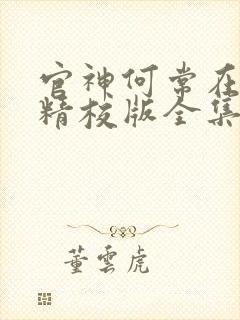 官神何常在
精校版全集
董雲虎